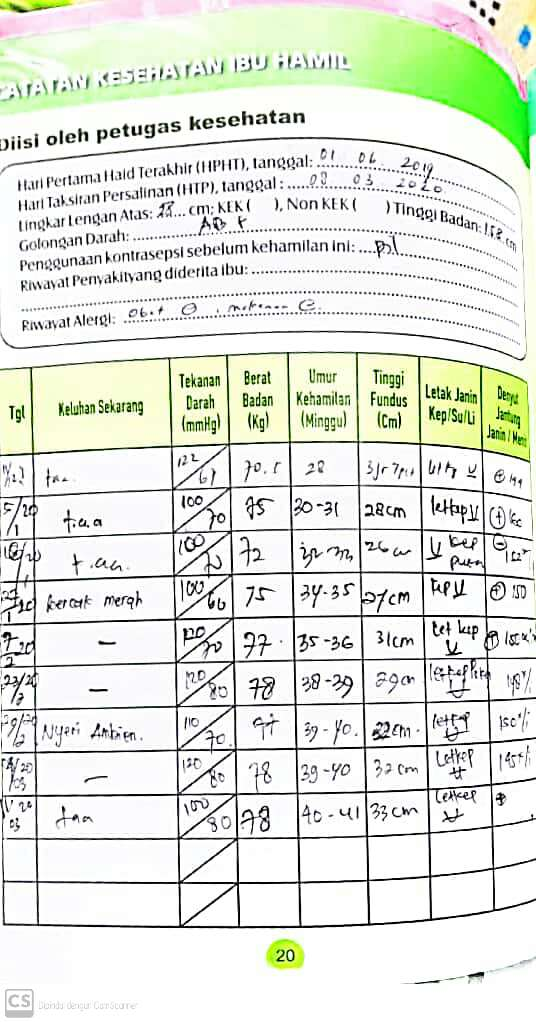 CATATAN KESEHATAN IBU HAMIL
Diisi oleh petugas kesehatan
Hari Pertama Haid Terakhir (HPHT), tanggal: 01 06 2019
Hari Taksiran Persalinan (HTP), tanggal: 08 03 2020
Lingkar Lengan Atas: 28 cm; KEK ( ), Non KEK ( ) Tinggi Badan: 158 cm
Golongan Darah: AB +
Penggunaan kontrasepsi sebelum kehamilan ini:
Riwayat Penyakityang diderita ibu:
Riwayat Alergi: obat ⊖, makanan ⊖
Tgl Keluhan Sekarang Tekanan Darah (mmHg) Berat Badan (Kg) Umur Kehamilan (Minggu) Tinggi Fundus (Cm) Letak Janin Kep/Su/Li Denyut Jantung Janin / Menit
taa 122/61 70.5 28 144
5/20 1 t.a.a 100/70 75 30-31 28cm letkep U (+) 160
t.aa. 100/70 72 26 cm U kep
bercak merah 100/60 75 34-35 27cm kep U (+) 150
7/20 2 - 120/70 77 35-36 31cm let kep U (+)
23/20 2 - 120/80 78 38-39 29cm
Nyeri Ambien. 110/70 39-40. 32cm. letkep U
03 - 120/80 78 39-40 32cm Letkep
20 03 taa 100/80 78 40-41 33cm Letkep
20
CS Dipindai dengan CamScanner